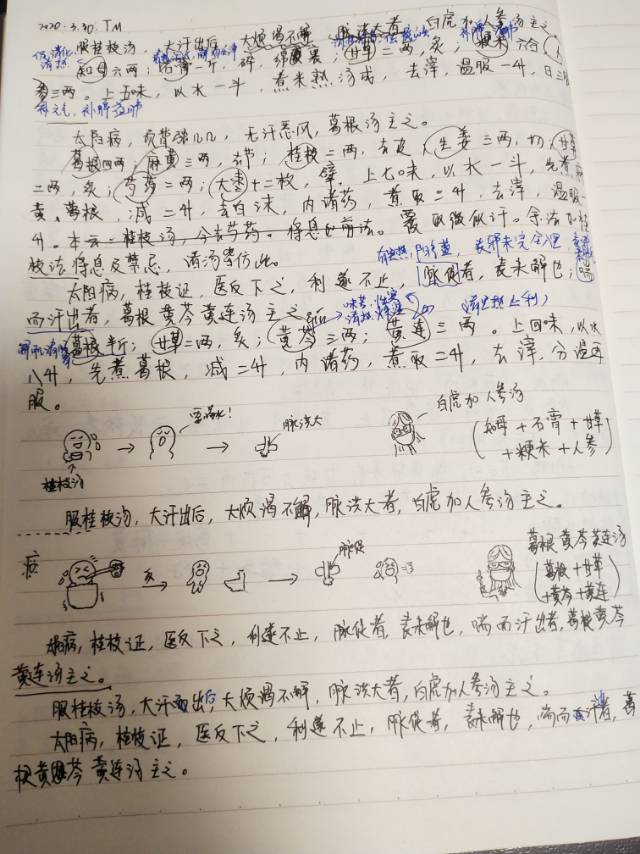 2020.3.30. TM
服桂枝汤，大汗出后，大烦渴不解，脉洪大者，白虎加人参汤主之。
知母六两；石膏一斤，碎，绵裹；甘草二两，炙；粳米六合；人
参三两。上五味，以水一斗，煮米熟汤成，去滓，温服一升，日三
补元气，补脾益肺
太阳病，项背强几几，无汗恶风，葛根汤主之。
葛根四两；麻黄三两，去节；桂枝二两，去皮；生姜三两，切；甘草
二两，炙；芍药二两；大枣十二枚，擘。上七味，以水一斗，先煮麻
黄、葛根，减二升，去白沫，内诸药，煮取三升，去滓，温服一
升。
覆取微似汗。余法如桂
枝法将息及禁忌，诸汤皆仿此。
太阳病，桂枝证，医反下之，利遂不止，脉促者，表未解也；喘
而汗出者，葛根黄芩黄连汤主之。
葛根半斤；甘草二两，炙；黄芩三两；黄连三两。上四味，以水
八升，先煮葛根，减二升，内诸药，煮取二升，去滓，分温再
服。
要喝水！
脉洪大
白虎加人参汤
(知母+石膏+甘草
+粳米+人参)
桂枝汤
服桂枝汤，大汗出后，大烦渴不解，脉洪大者，白虎加人参汤主之。
脉促
葛根黄芩黄连汤
(葛根+甘草
+黄芩+黄连)
反
太阳病，桂枝证，医反下之，利遂不止，脉促者，表未解也，喘而汗出者，葛根黄芩
黄连汤主之。
服桂枝汤，大汗出后，大烦渴不解，脉洪大者，白虎加人参汤主之。
太阳病，桂枝证，医反下之，利遂不止，脉促者，表未解也，喘而汗者，葛
根黄芩黄连汤主之。